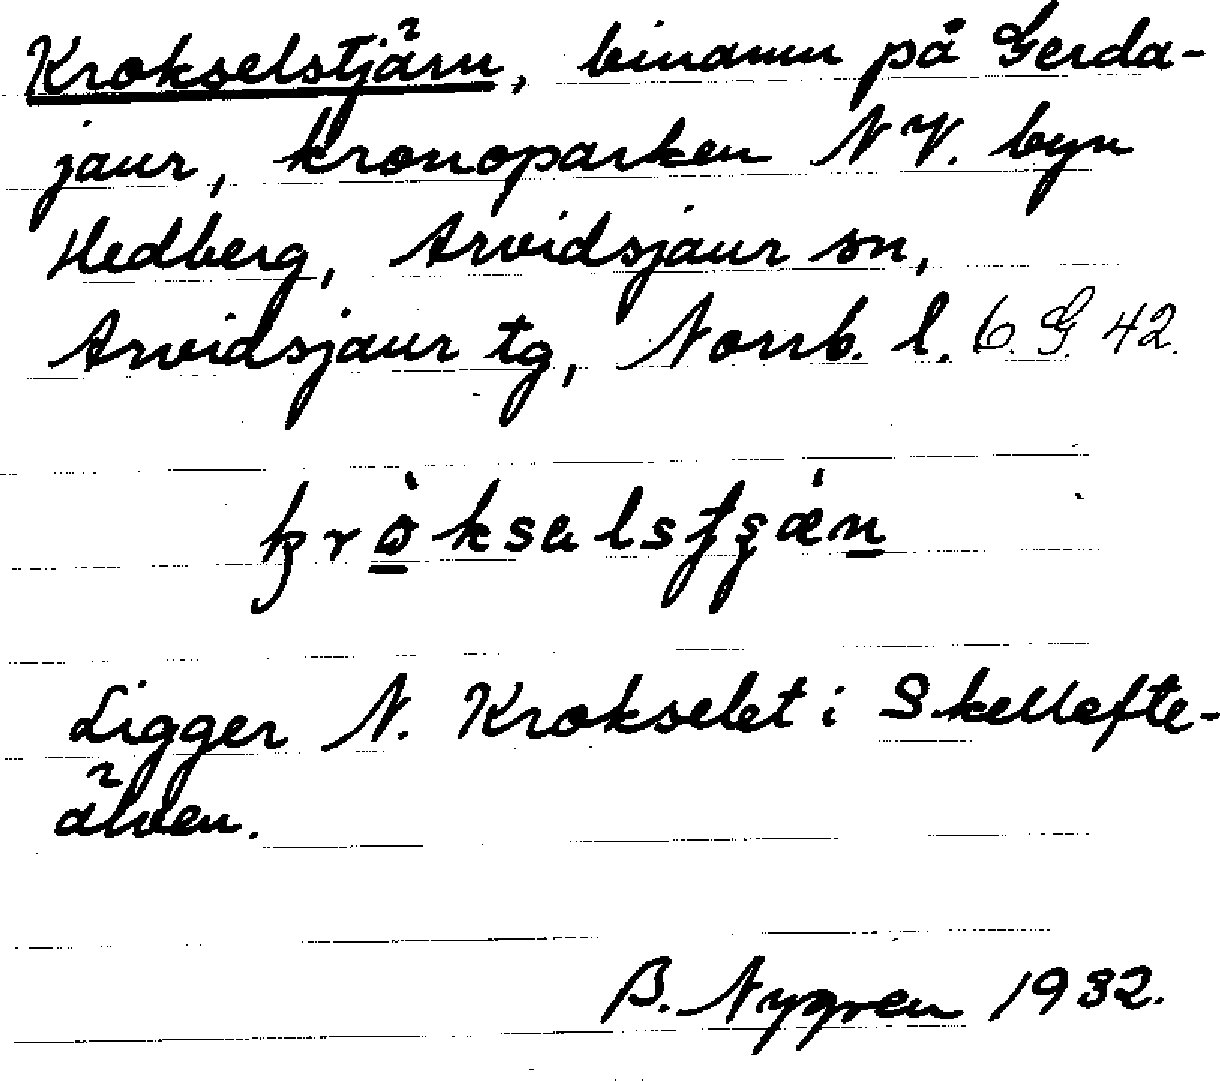 Krokselstjärn, binamn på Gerda-
jaur, kronoparken NV. byn
Hedberg, Arvidsjaur sn,
Arvidsjaur tg, Norrb. l. 6. G 42.
Ligger N. Krokselet i Skellefte-
älven.
B. Nygren 1932.